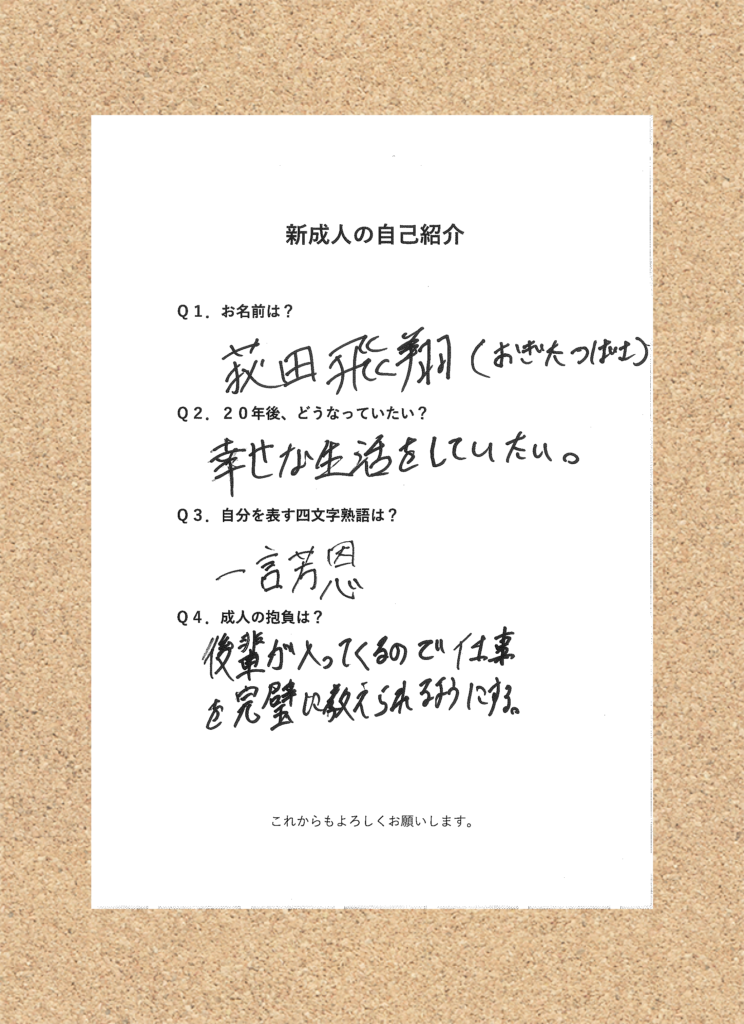 新成人の自己紹介
Q1. お名前は？
荻田飛翔(おぎたつばさ)
Q2. 20年後、どうなっていたい？
幸せな生活をしていたい。
Q3. 自分を表す四文字熟語は？
一言芳恩
Q4. 成人の抱負は？
後輩が入ってくるので仕事
を完璧に教えられるようにする。
これからもよろしくお願いします。